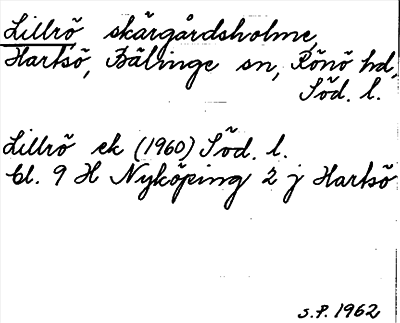 Lillrö skärgårdsholme,
Hartsö, Bälinge sn, Rönö hd,
Söd. l.
Lillrö ek (1960) Söd. l.
bl. 9 H Nyköping 2 j Hartsö
S.P. 1962